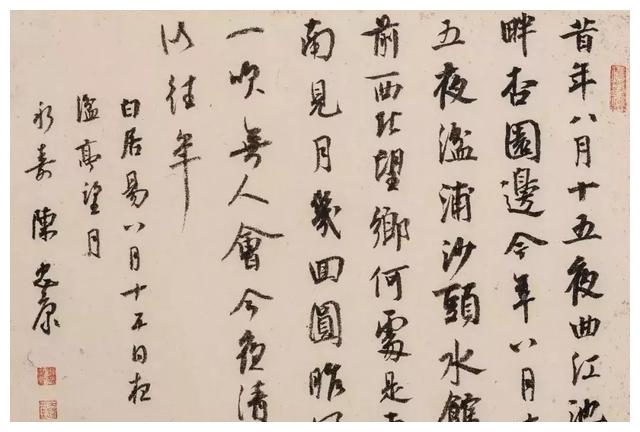 昔年八月十五夜曲江池
畔杏園邊今年八月
五夜湓浦沙頭水館
前西北望鄉何處是
南見月幾回圓昨
一吹無人會今夜清
似往年
白居易八月十五日夜
湓亭望月
永嘉陳忠康